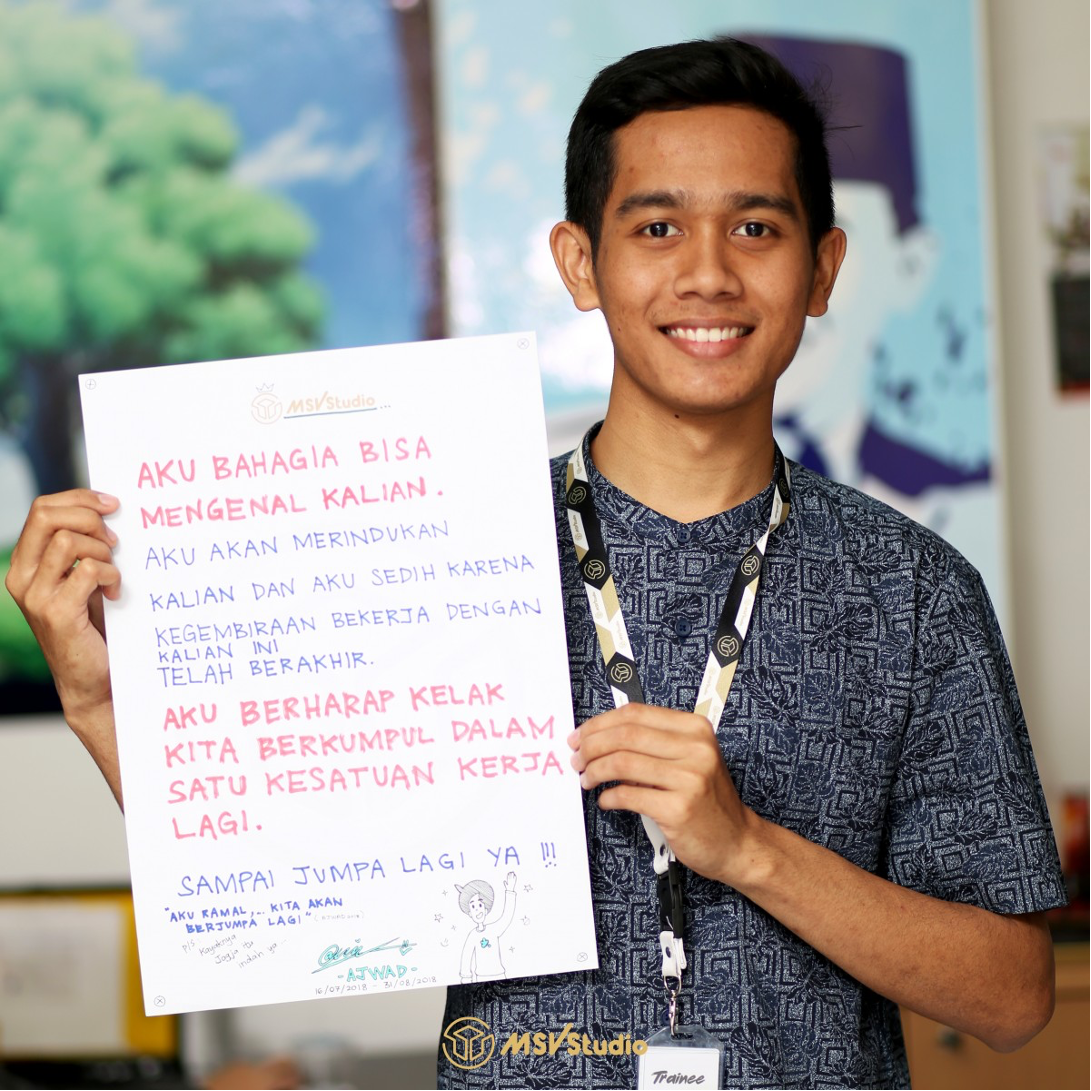 MSVStudio...
AKU BAHAGIA BISA
MENGENAL KALIAN.
AKU AKAN MERINDUKAN
KALIAN DAN AKU SEDIH KARENA
KEGEMBIRAAN BEKERJA DENGAN
KALIAN INI
TELAH BERAKHIR.
AKU BERHARAP KELAK
KITA BERKUMPUL DALAM
SATU KESATUAN KERJA
LAGI.
SAMPAI JUMPA LAGI YA !!!
"AKU RAMAL,.. KITA AKAN
BERJUMPA LAGI"
P/S Kayaknya
Jogja itu
indah ya..
-AJWAD-
16/07/2018 - 31/08/2018
MSVStudio
Trainee